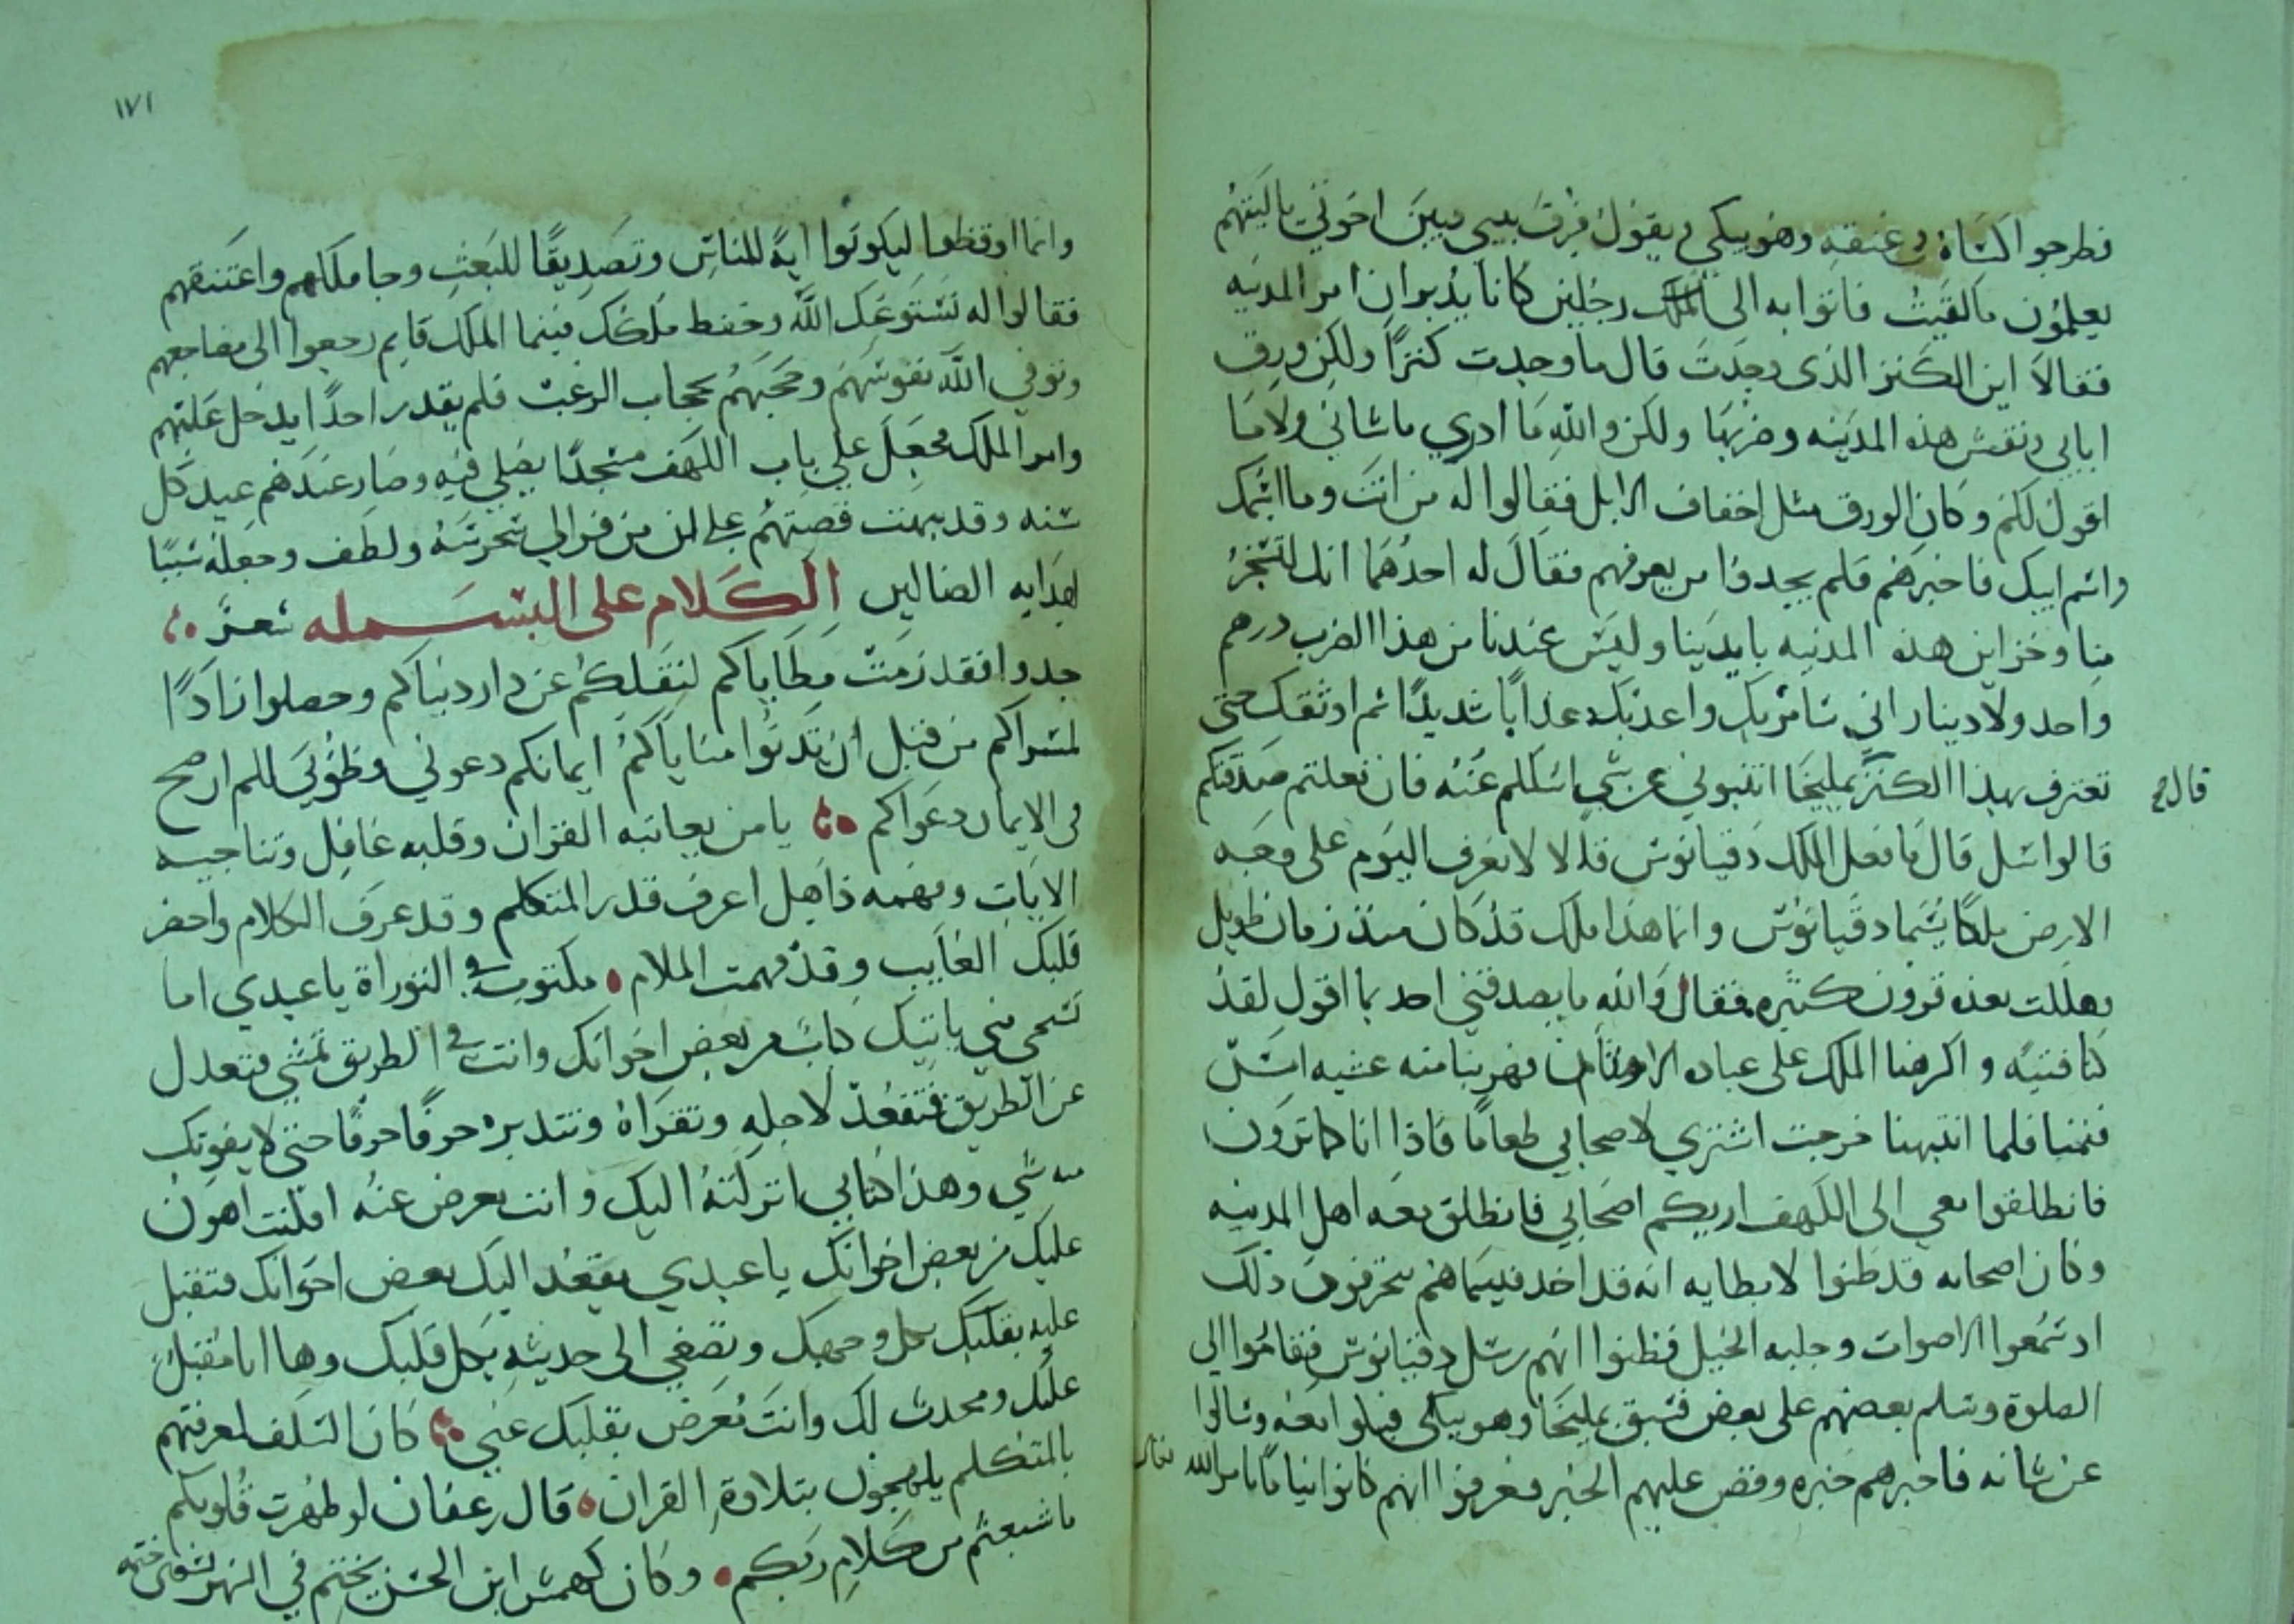 فطرحوا كساه في عنقه وهو يبكي ويقول فرق بيني وبين اخوتي ياليتهم
يعلمون مالقيت فاتوا به الى الملك رجلين كانا يدبران امر المدينه
فقالا اين الكنز الذى وجدت قال ما وجدت كنزا ولكن ورق
ابايي ونقش هذه المدينه وضربها ولكن والله ما ادري ما شاني ولا ما
اقول لكم وكان الورق مثل اخفاف الابل فقالوا له من انت وما اسمك
واسم ابيك فاخبرهم فلم يجدوا من يعرفهم فقال له احدهما انك لتسخر
منا وخزاين هذه المدينه بايدينا وليس عندنا من هذا الضرب درهم
واحد ولا دينار اني سامر بك واعذبك عذابا شديدا ثم اوثقك حتى
تعترف بهذا الكنز يمليخا انتبوني عن شي اسللم عنه فان فعلتم صدقتكم
قال
قالوا سل قال ما فعل الملك دقيانوس قالا لا نعرف اليوم على وجه
الارض ملكا يسما دقيانوس وانما هذا ملك قد كان منذ زمان طويل
وهللت بعده قرون كثيره فقال والله ما يصدقني احد بما اقول لقد
كنا فتيه واكرهنا الملك على عباده الاوثان فهربنا منه عشيه امس
فنمنا فلما انتبهنا خرجت اشتري لاصحابي طعاما فاذا انا كما ترون
فانطلقوا معي الى الكهف اريكم اصحابي فانطلق معه اهل المدينه
وكان اصحابه قد ظنوا لابطايه انه قد اخذ فبينما هم يتخوفون ذلك
اذ سمعوا الاصوات وجلبه الخيل فظنوا انهم رسل دقيانوس فقاموا الى
الصلوة وسلم بعضهم على بعض فسبق يمليخا وهو يبكي فبكوا معه وسالوا
عن شانه فاخبرهم خبره وقص عليهم الخبر فعرفوا انهم كانوا نياما بامر الله تعالى
١٧١
وانما اوقظوا ليكونوا اية للناس وتصديقا للبعث وجا ملكهم واعتنقهم
فقالوا له نستودعك الله وحفظ ملكك فبينما الملك قايم رجعوا الى مضاجعهم
وتوفي الله نفوسهم وحجبهم بحجاب الرعبت فلم يقدر احدا يدخل عليهم
وامر الملك فجعل على باب الكهف مسجدا يصلي فيه وصار عندهم عيد كل
سنه وقد بهنت قصتهم على من فر الى حرسه ولطف وجعله سببا
لهدايه الضالين الكلام على البسمله شعر
جدوا فقد زمت مطاياكم لنقلكم عن دار دنياكم وحصلوا زادا
لمسراكم من قبل ان تدنوا مناياكم ايمانكم دعوني وظوبى للم ان صح
فى الايمان دعواكم يا من يعاتبه القران وقلبه غافل وتناجيه
الايات وفهمه ذاهل اعرف قدر المتكلم وقد عرف الكلام واحضر
قلبك الغايب وقد فهمت الملام مكتوب في التوراة يا عبدي اما
تستحي مني ياتيك كتاب من بعض اخوانك وانت في الطريق تمشي فتعدل
عن الطريق فتقعد لاجله وتقراه وتتدبره حرفا حرفا حتى لا يفوتك
منه شي وهذا كتابي انزلته اليك وانت معرض عنه افلنت اهون
عليك من بعض اخوانك يا عبدي يقعد اليك بعض اخوانك فتقبل
عليه بقلبك بكل وجهك وتصغي الى حديثه بكل قلبك وها انا مقبل
عليك ومحدث لك وانت تعرض بقلبك عني كان السلف لمعرفتهم
بالمتكلم يلهجون بتلاوة القران قال بن عفان لو طهرت قلوبكم
ما شبعتم من كلام ربكم وكان كهمس ابن الحسن يختم في الشهر تسعين ختمه